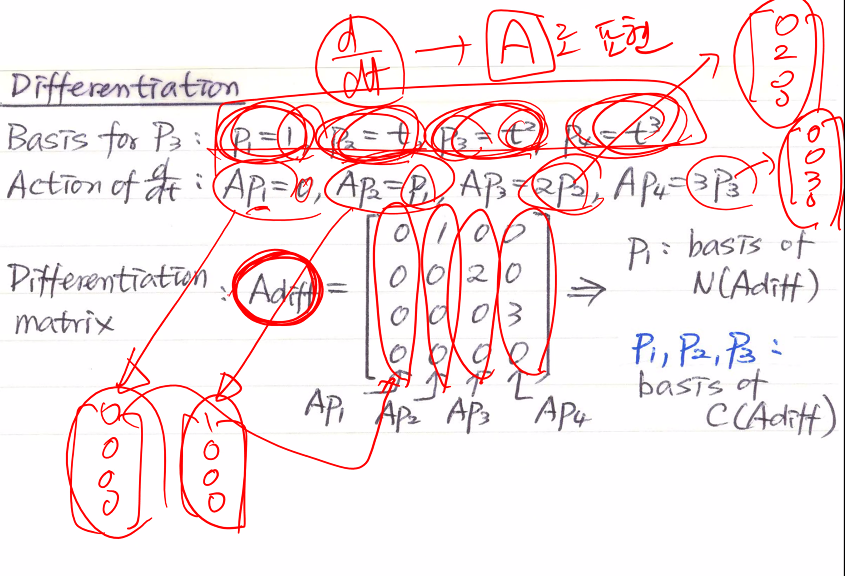 d/dt → A로 표현
Differentiation
Basis for P₃ : P₁=1, P₂=t, P₃=t², P₄=t³
Action of d/dt : AP₁=0, AP₂=P₁, AP₃=2P₂, AP₄=3P₃
[0 2 0 0]
[0 0 3 0]
Differentiation matrix : Adiff =
0 1 0 0
0 0 2 0
0 0 0 3
0 0 0 0
AP₁ AP₂ AP₃ AP₄
⇒ P₁ : basis of
N(Adiff)
P₁, P₂, P₃ :
basis of
C(Adiff)
[0 0 0 0]
[1 0 0 0]